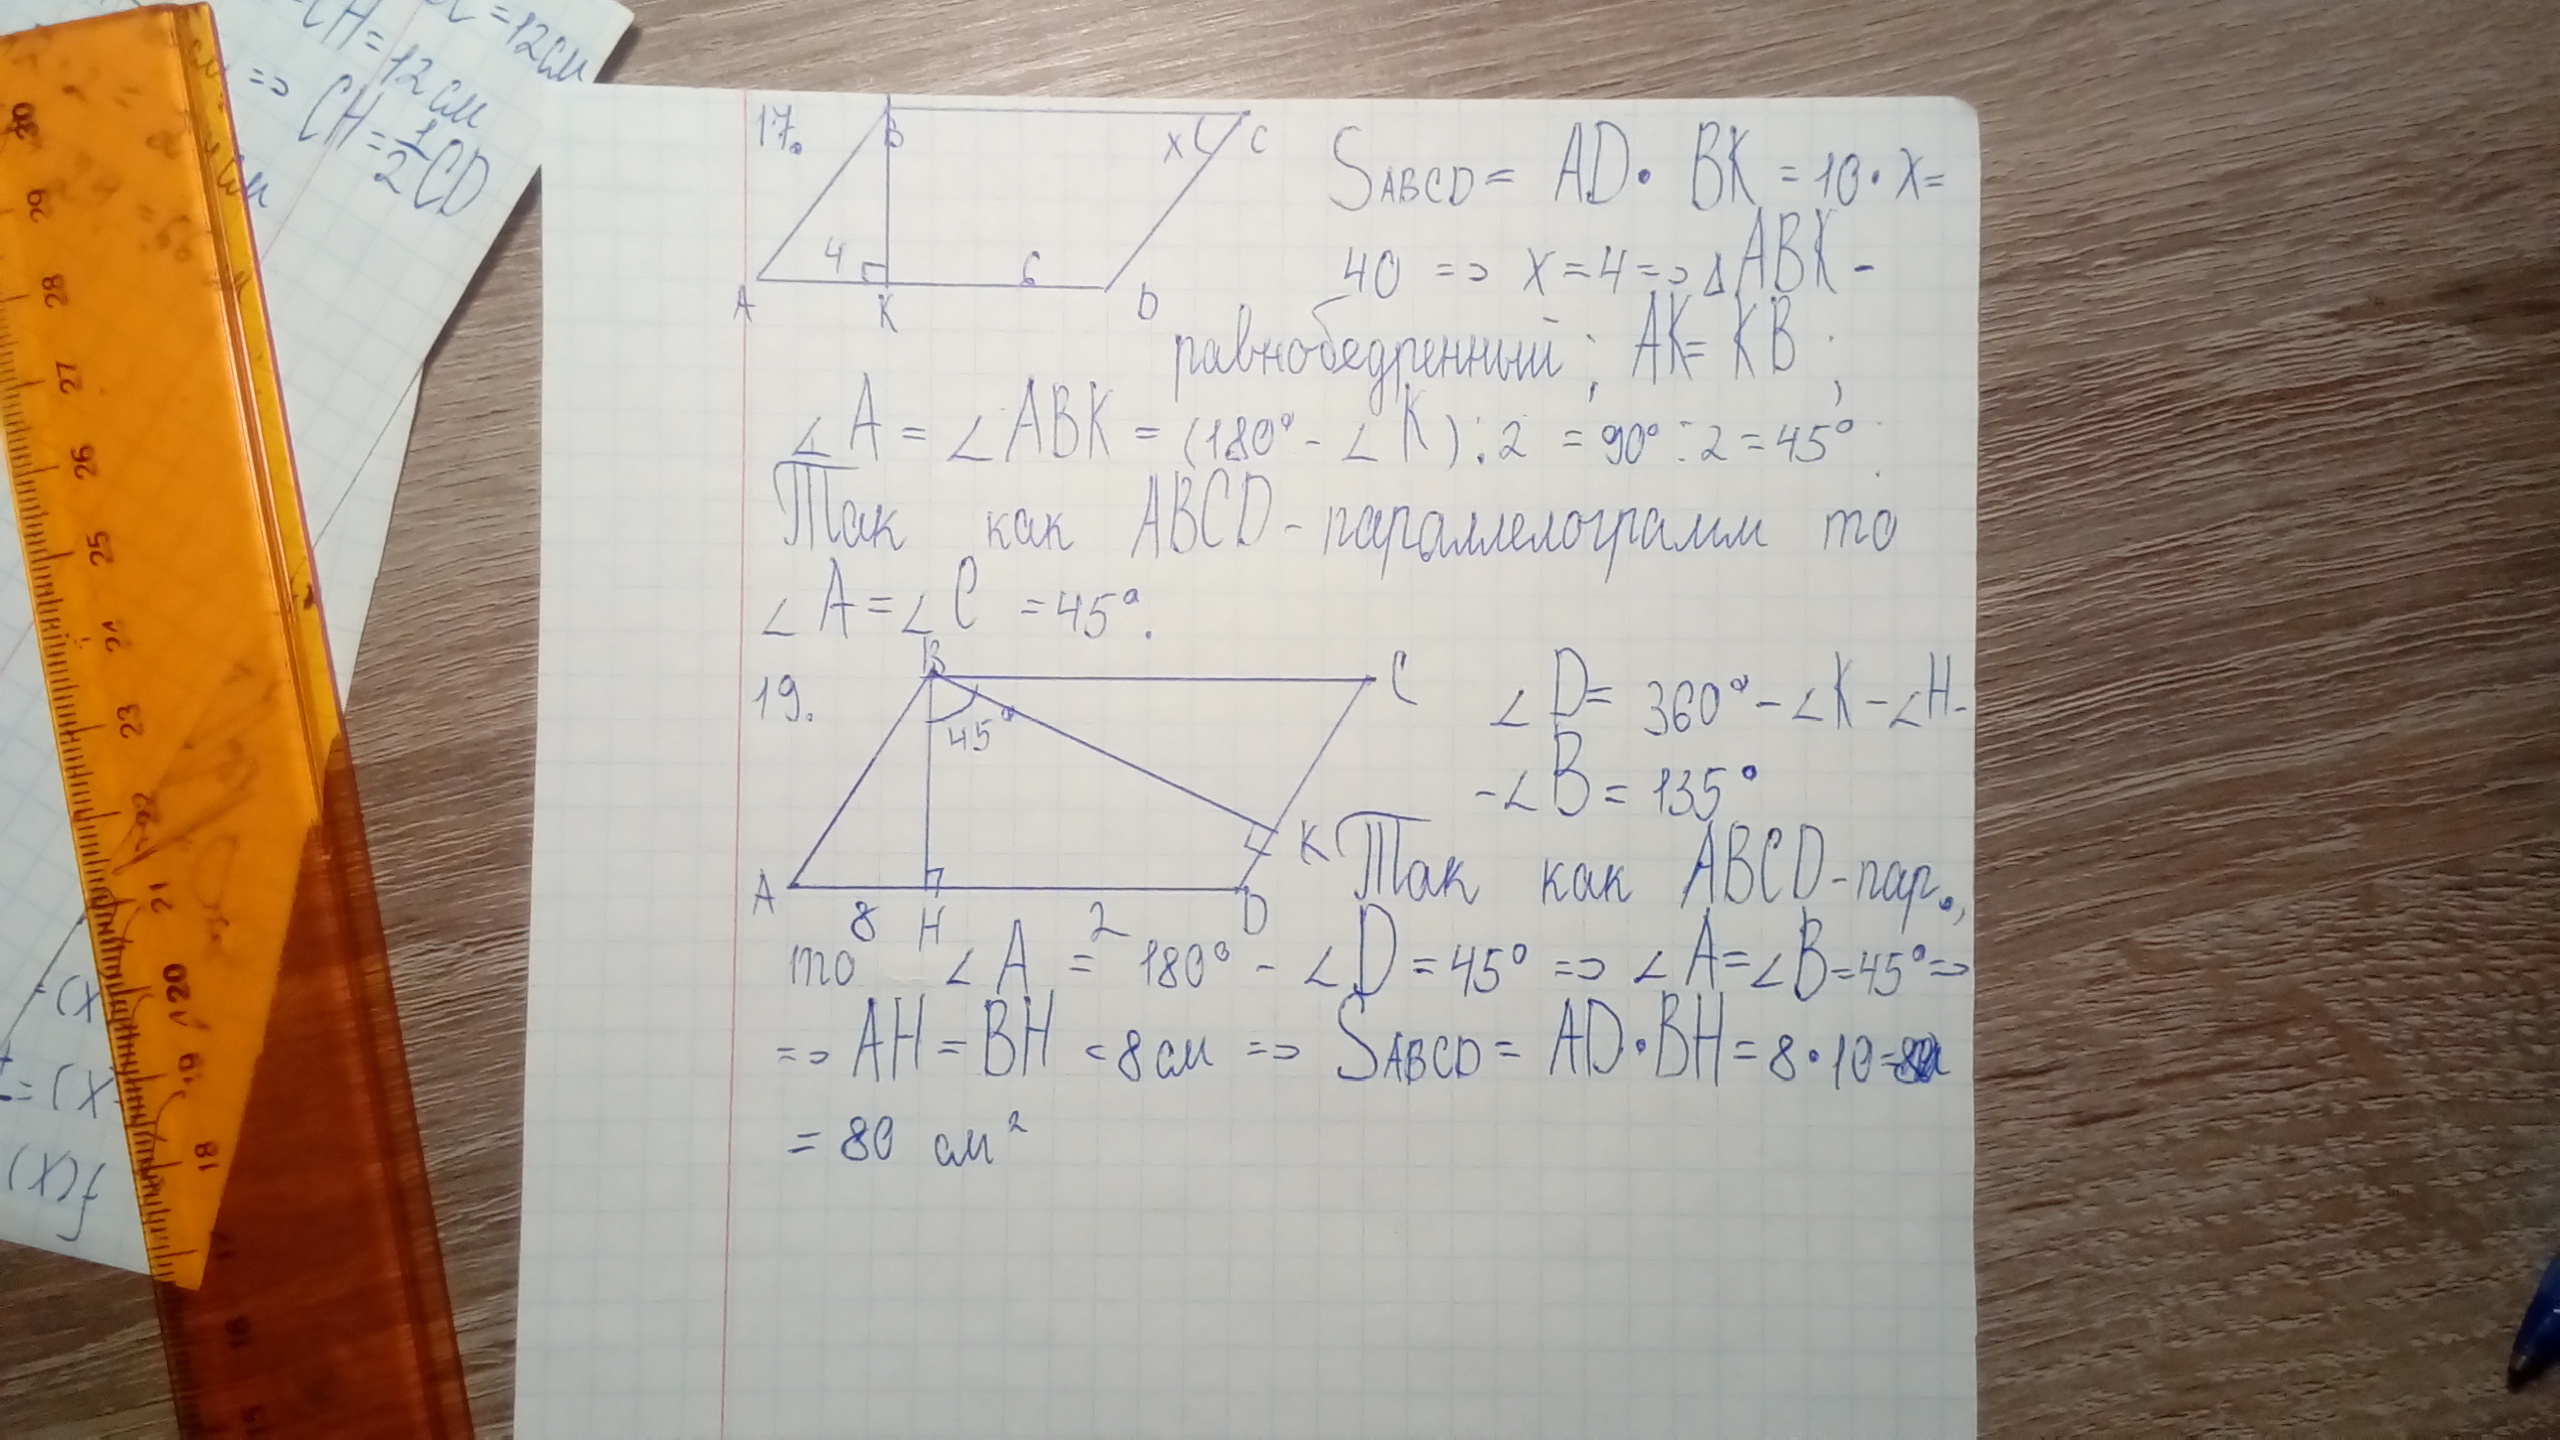 =12см
CH=12см
=> CH=1/2CD
17.
B
x
C
4
6
A
K
D
SABCD = AD · BK = 10 · x =
40 => x = 4 => △ABK -
равнобедренный; AK = KB;
∠A = ∠ABK = (180° - ∠K) : 2 = 90° : 2 = 45°.
Так как ABCD - параллелограмм то
∠A = ∠C = 45°.
19.
B
C
45°
K
A
8
H
2
D
∠D = 360° - ∠K - ∠H -
- ∠B = 135°
Так как ABCD - пар.,
то ∠A = 180° - ∠D = 45° => ∠A = ∠B = 45° =>
=> AH = BH = 8 см => SABCD = AD · BH = 8 · 10 =
= 80 см²
30
29
28
27
26
25
24
23
22
21
20
19
18
17
16
15
f(x)